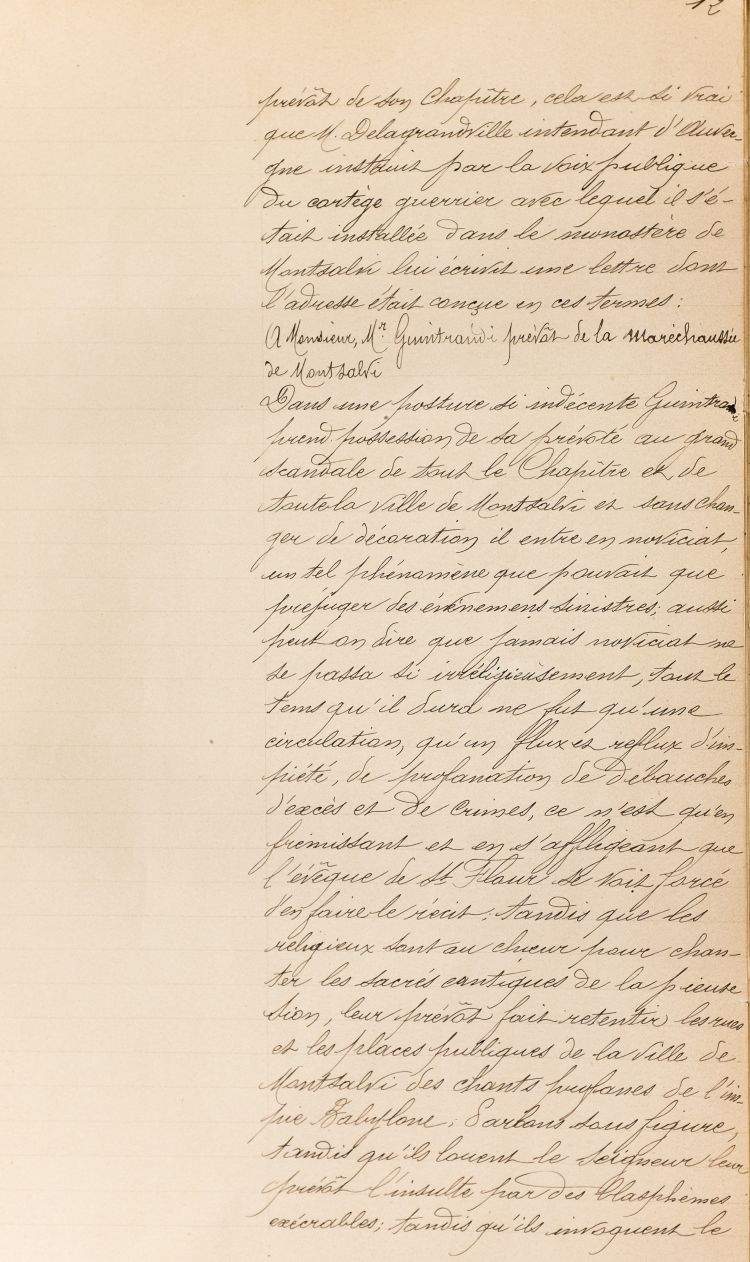 12
prévôt de son Chapître, cela est si vrai
que M. Delagrandville intendant d'Auver-
gne instruit par la voix publique
du cortège guerrier avec lequel il s'é-
tait installée dans le monastère de
Montsalvi lui écrivit une lettre dont
l'adresse était conçue en ces termes :
A Monsieur, Mr Guintrandi prévôt de la maréchaussée
de Montsalvi
Dans une posture si indécente Guintrandi
prend possession de sa prévoté au grand
scandale de tout le Chapître et de
toute la ville de Montsalvi et sans chan-
ger de décoration il entre en noviciat,
un tel phénomène que pouvait que
préjuger des événemens sinistres; aussi
peut on dire que jamais noviciat ne
se passa si irréligieusement, tout le
tems qu'il dura ne fut qu'une
circulation, qu'un flux et reflux d'im-
piété, de profanation de débauches
d'excès et de crimes, ce n'est qu'en
frémissant et en s'affligeant que
l'évêque de St Flour se voit forcé
d'en faire le récit : tandis que les
religieux sont au chœur pour chan-
ter les sacrés cantiques de la pieuse
Sion, leur prévôt fait retentir les rues
et les places publiques de la ville de
Montsalvi des chants profanes de l'im-
pie Babylone; Parlons sous figure,
tandis qu'ils louent le Seigneur leur
prévôt l'insulte par des blasphèmes
exécrables; tandis qu'ils invoquent le